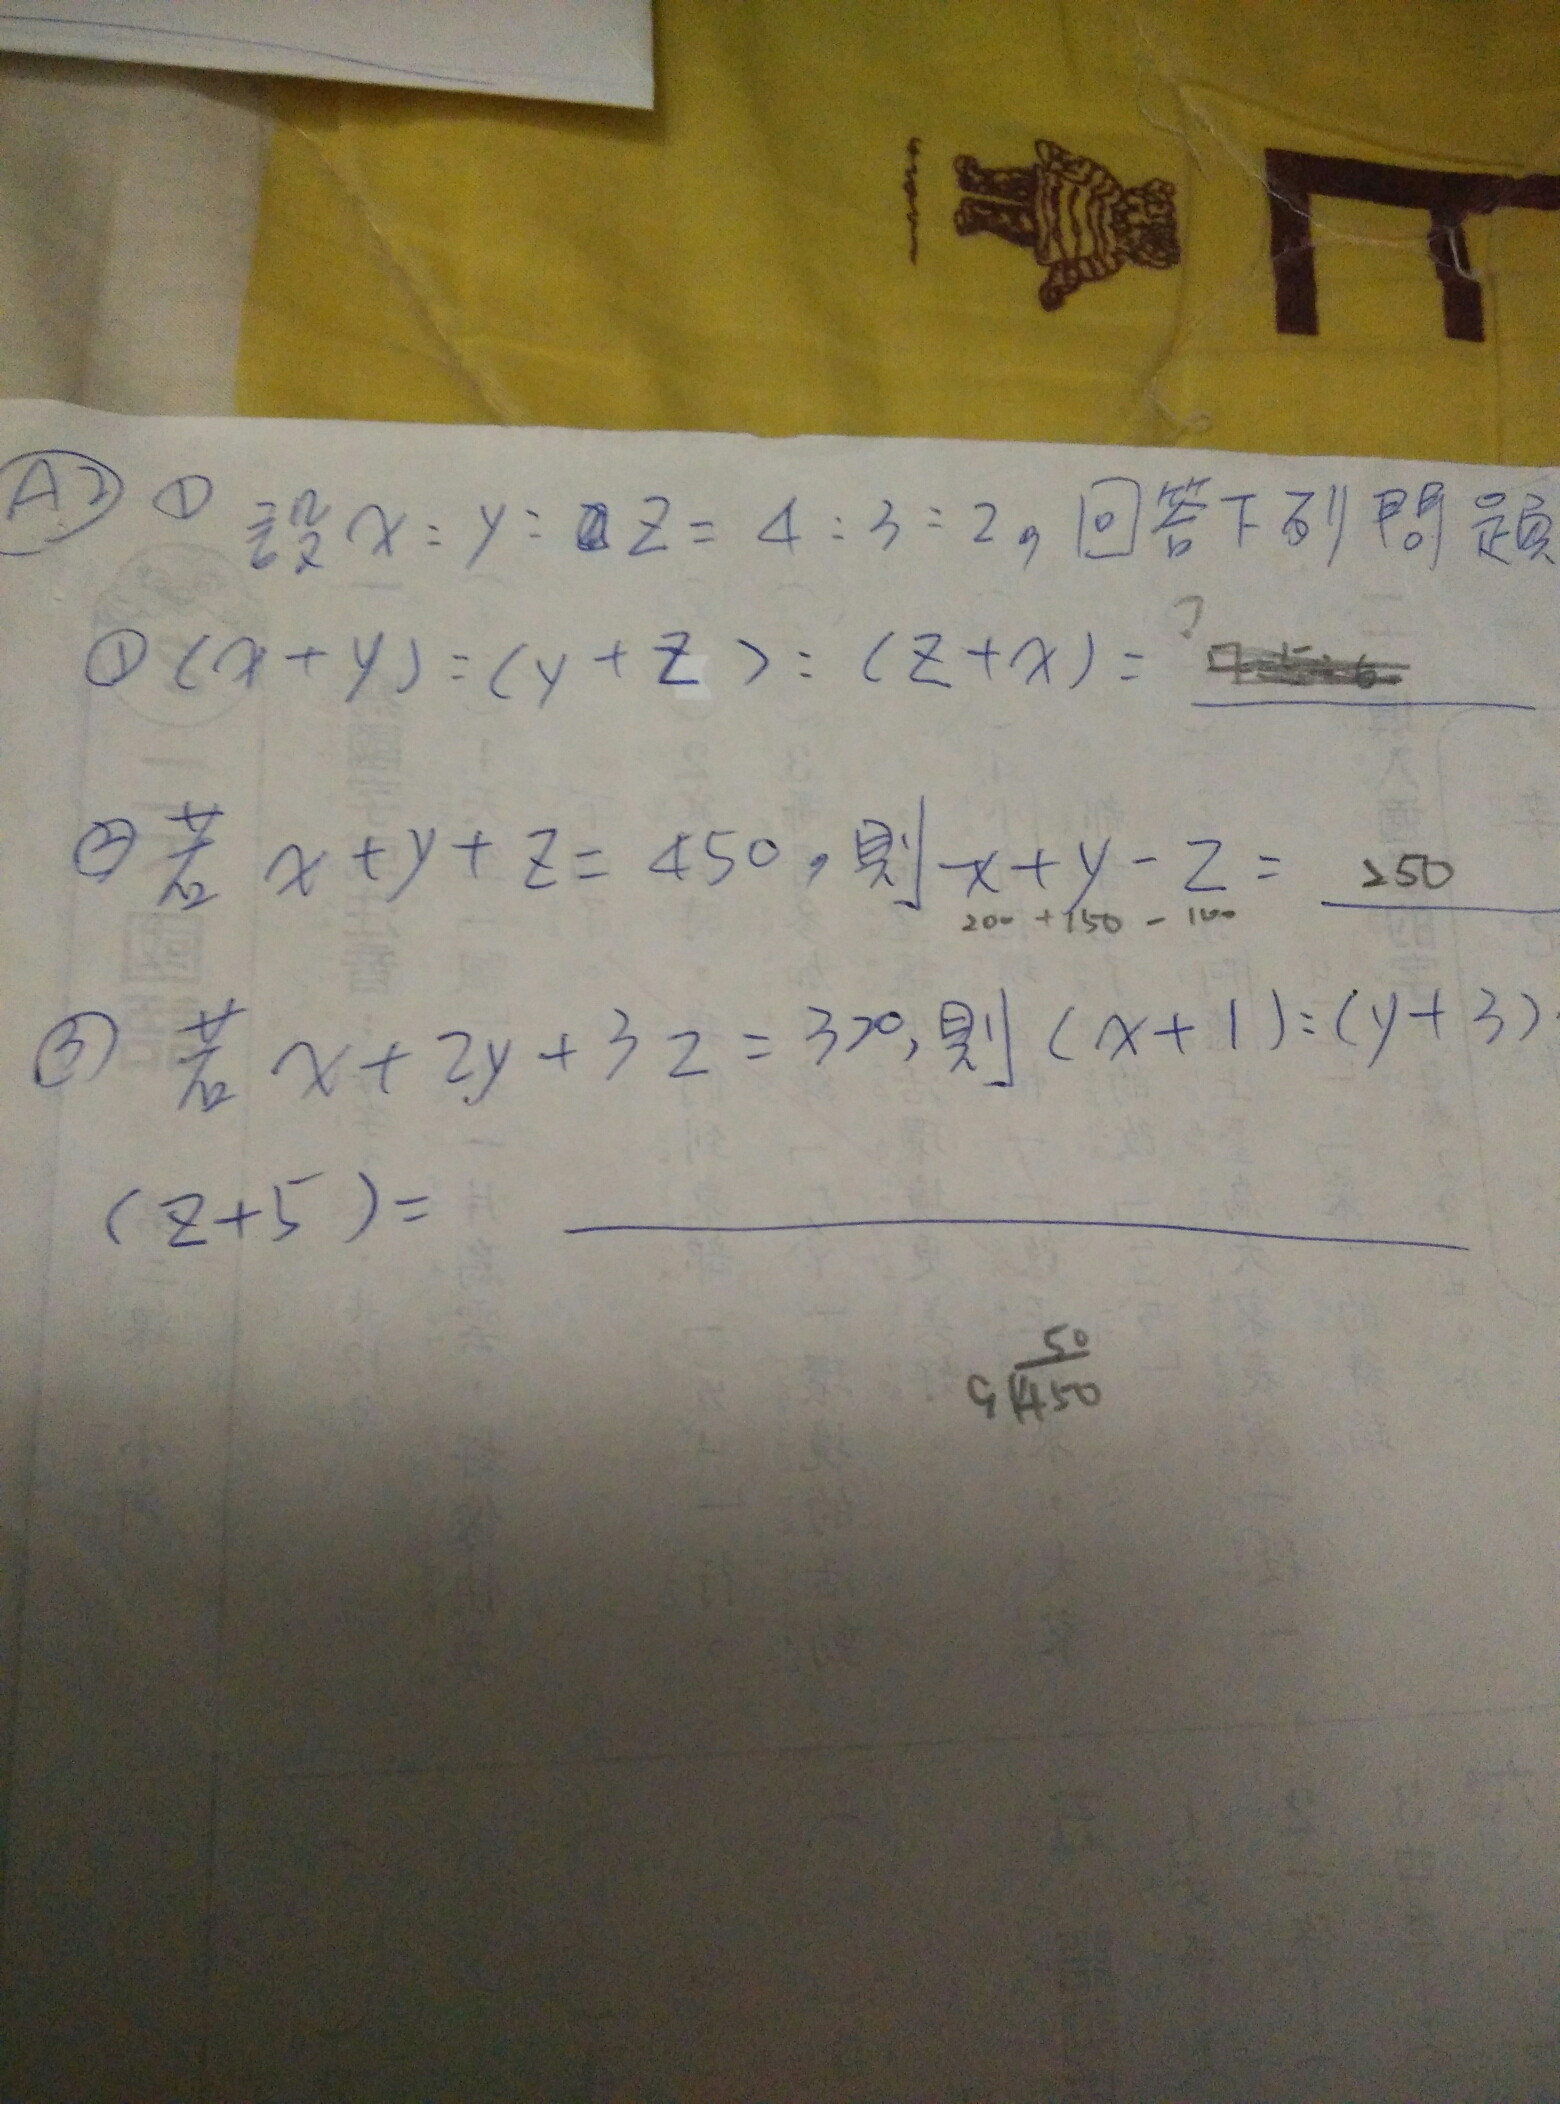 A2 ① 設x:y:z=4:3:2,回答下列問題
①(x+y):(y+z):(z+x)=
②若x+y+z=450,則x+y-z= 250
200+150-100
③若x+2y+3z=320,則(x+1):(y+3):
(z+5)=
50
9 450